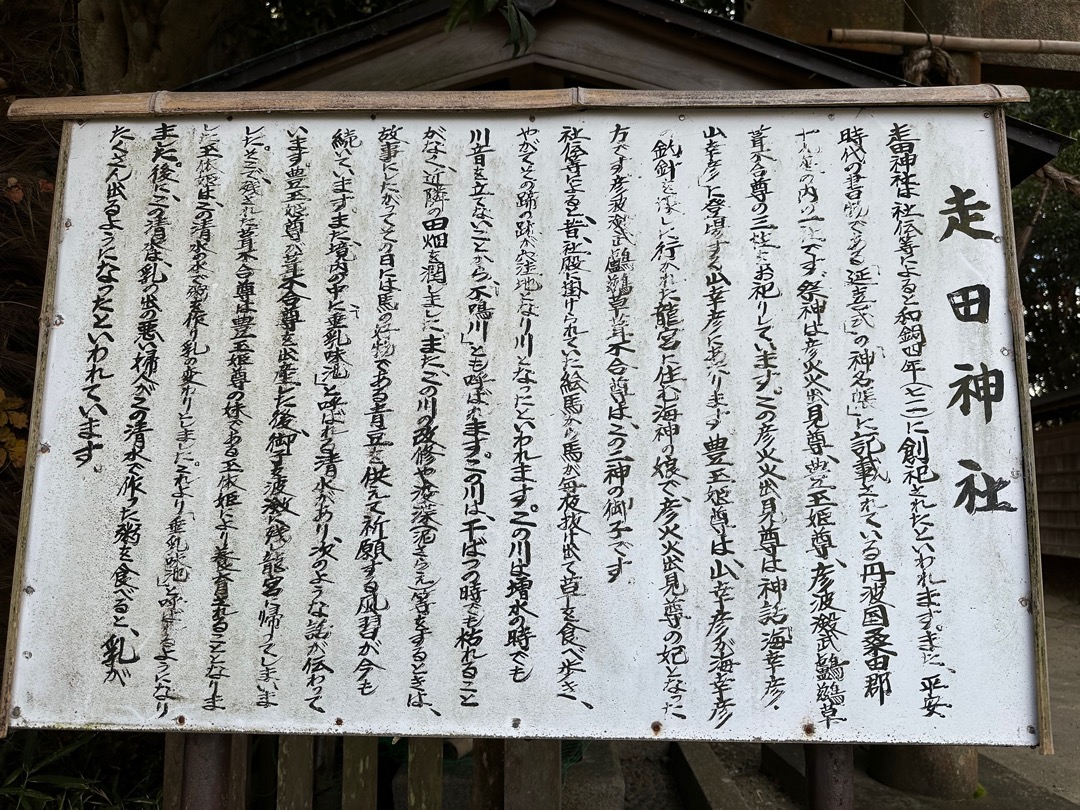 走田神社
走田神社は社伝等によると和銅四年(七一一)に創祀されたといわれます。また、平安
時代の書物である「延喜式」の神名帳」に記載されている丹波国桑田郡
十九座の内の一つです。祭神は彦火火出見尊、豊玉姫尊、彦波瀲武鸕鶿草
葺不合尊の三柱をお祀りしています。この彦火火出見尊は神話「海幸彦・
山幸彦」に登場する山幸彦にあたります。豊玉姫尊は、山幸彦が海幸彦
の釣針を探しに行かれた龍宮に住む海神の娘で、彦火火出見尊の妃となった
方です。彦波瀲武鸕鶿草葺不合尊は、この二神の御子です。
社伝等によると昔、社殿に掛けられていた絵馬から馬が毎夜抜け出て苗を食べ歩き、
やがてその蹄の跡が窪地となり川となったといわれます。この川は増水の時でも
川音を立てないことから「不鳴川」とも呼ばれます。この川は、干ばつの時でも枯れること
がなく、近隣の田畑を潤しました。またこの川の改修や溝藻泥さらえ等をするときは、
故事にしたがってその日には馬の好物である青豆を供えて祈願する風習が今も
続いています。また境内の中に「垂乳味池」と呼ばれる清水があり、次のような話が伝わって
います。豊玉姫尊が葺不合尊を出産した後、御子を波激に残し龍宮に帰ってしまいま
した。そこで残された葺不合尊は豊玉姫尊の妹である玉依姫により養育されることとなりま
した。玉依姫はこの清水の水で粥を作り乳の変わりとしました。それより「垂乳味池」と呼ばれるようになり
ました。後に、この清水は、乳の出の悪い婦人がこの清水で作った粥を食べると、乳が
たくさん出るようになったといわれています。